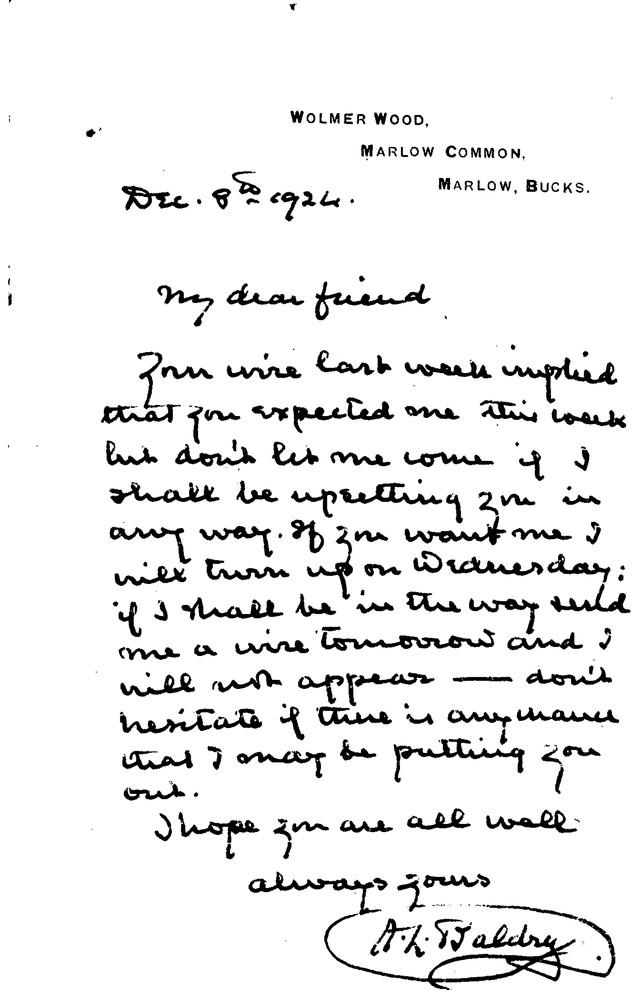 WOLMER WOOD,
MARLOW COMMON,
MARLOW, BUCKS.
Dec. 8th 1924.
My dear friend
Your wire last week implied
that you expected me this week
but don't let me come if I
shall be upsetting you in
any way. If you want me I
will turn up on Wednesday:
if I shall be in the way send
me a wire tomorrow and I
will not appear — don't
hesitate if there is any chance
that I may be putting you
out.
I hope you are all well
always yours
A. L. Baldry.